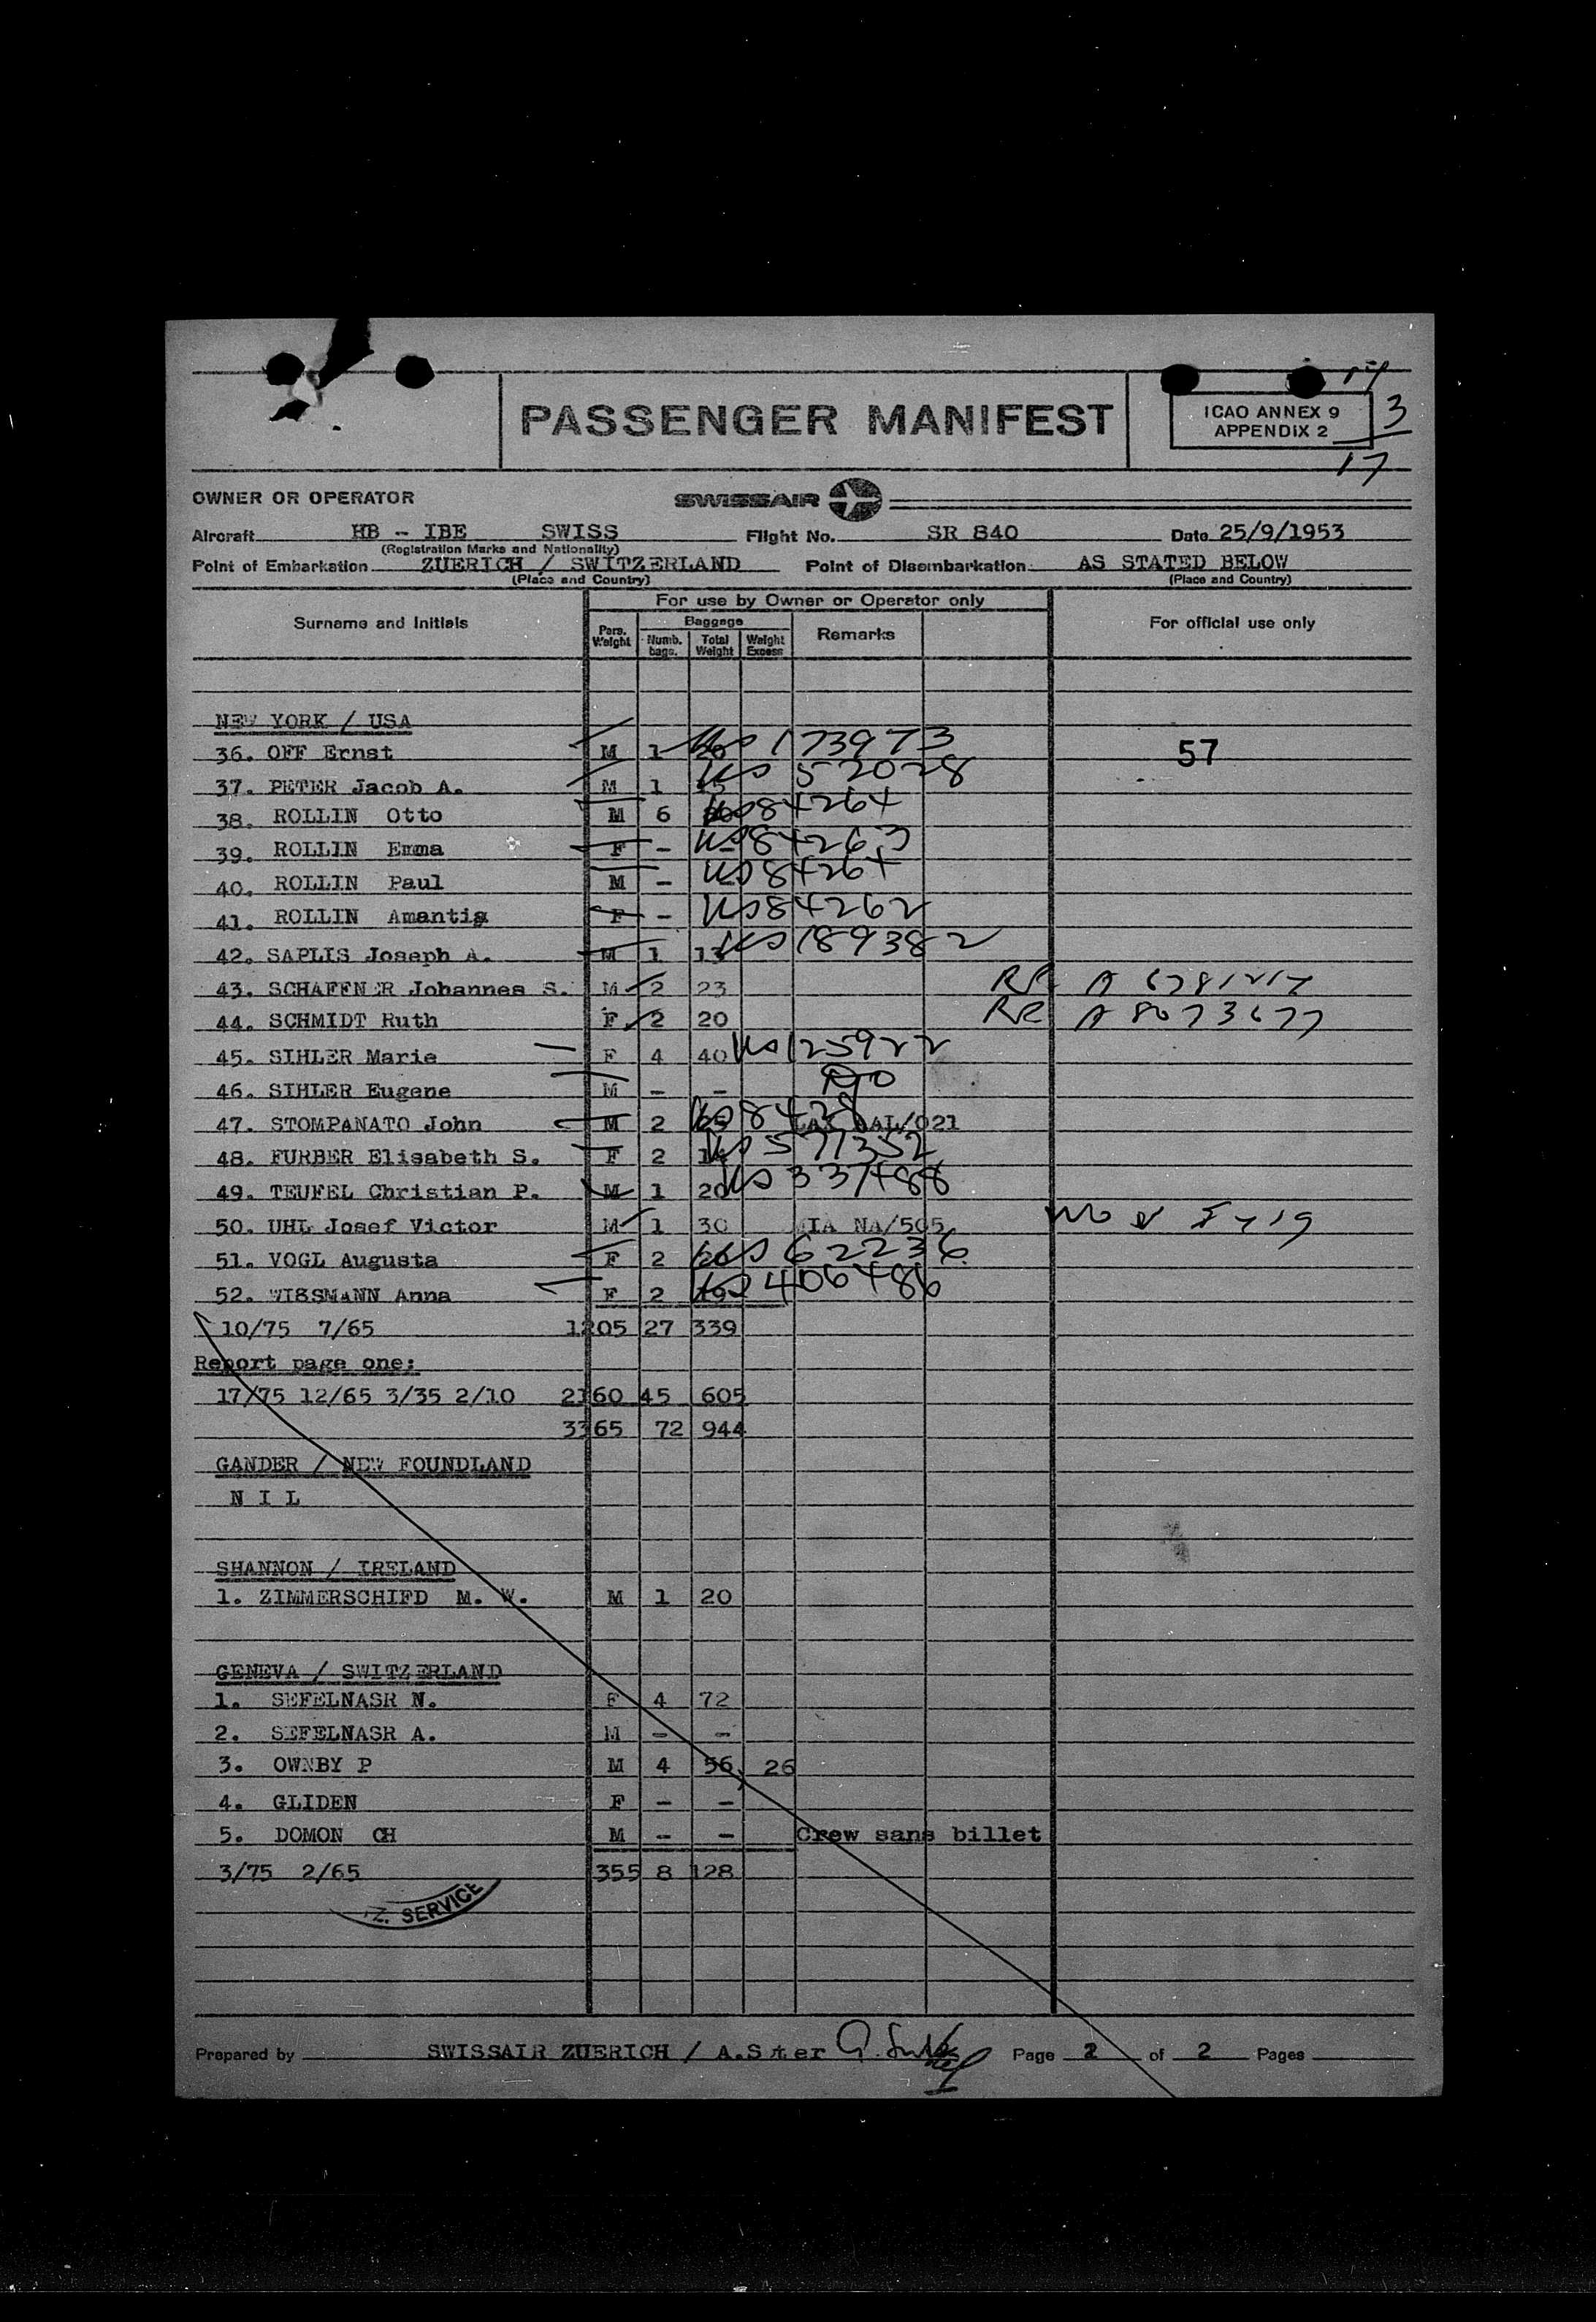 PASSENGER MANIFEST
ICAO ANNEX 9
APPENDIX 2
3
17
OWNER OR OPERATOR
SWISSAIR
Aircraft HB - IBE SWISS Flight No. SR 840 Date 25/9/1953
(Registration Marks and Nationality)
Point of Embarkation ZUERICH / SWITZERLAND Point of Disembarkation AS STATED BELOW
(Place and Country) (Place and Country)
For use by Owner or Operator only
Surname and Initials Pers. Weight Baggage Numb. bags. Total Weight Weight Excess Remarks For official use only
NEW YORK / USA
36. OFF Ernst M 1 US 173973 57
37. PETER Jacob A. M 1 US 52028
38. ROLLIN Otto M 6 US 84264
39. ROLLIN Emma F - US 84263
40. ROLLIN Paul M - US 84264
41. ROLLIN Amantia F - US 84262
42. SAPLIS Joseph A. M 1 13 US 189382
43. SCHAFFNER Johannes S. M 2 23 RR A
44. SCHMIDT Ruth F 2 20 RR A 8073677
45. SIHLER Marie F 4 40 US 125922
46. SIHLER Eugene M - - Do
47. STOMPANATO John M 2 US LAX AAL/021
48. FURBER Elisabeth S. F 2 US 571352
49. TEUFEL Christian P. M 1 20 US 337488
50. UHL Josef Victor M 1 30 MIA NA/505
51. VOGL Augusta F 2 US 62236
52. WISSMANN Anna F 2 US 406486
10/75 7/65 1205 27 339
Report page one:
17/75 12/65 3/35 2/10 2160 45 605
3365 72 944
GANDER / NEW FOUNDLAND
N I L
SHANNON / IRELAND
1. ZIMMERSCHIFD M. W. M 1 20
GENEVA / SWITZERLAND
1. SEFELNASR N. F 4 72
2. SEFELNASR A. M - -
3. OWNBY P M 4 56 26
4. GLIDEN F - -
5. DOMON CH M - - Crew sans billet
3/75 2/65 355 8 128
Z. SERVICE
Prepared by SWISSAIR ZUERICH / A.Suter Page 2 of 2 Pages